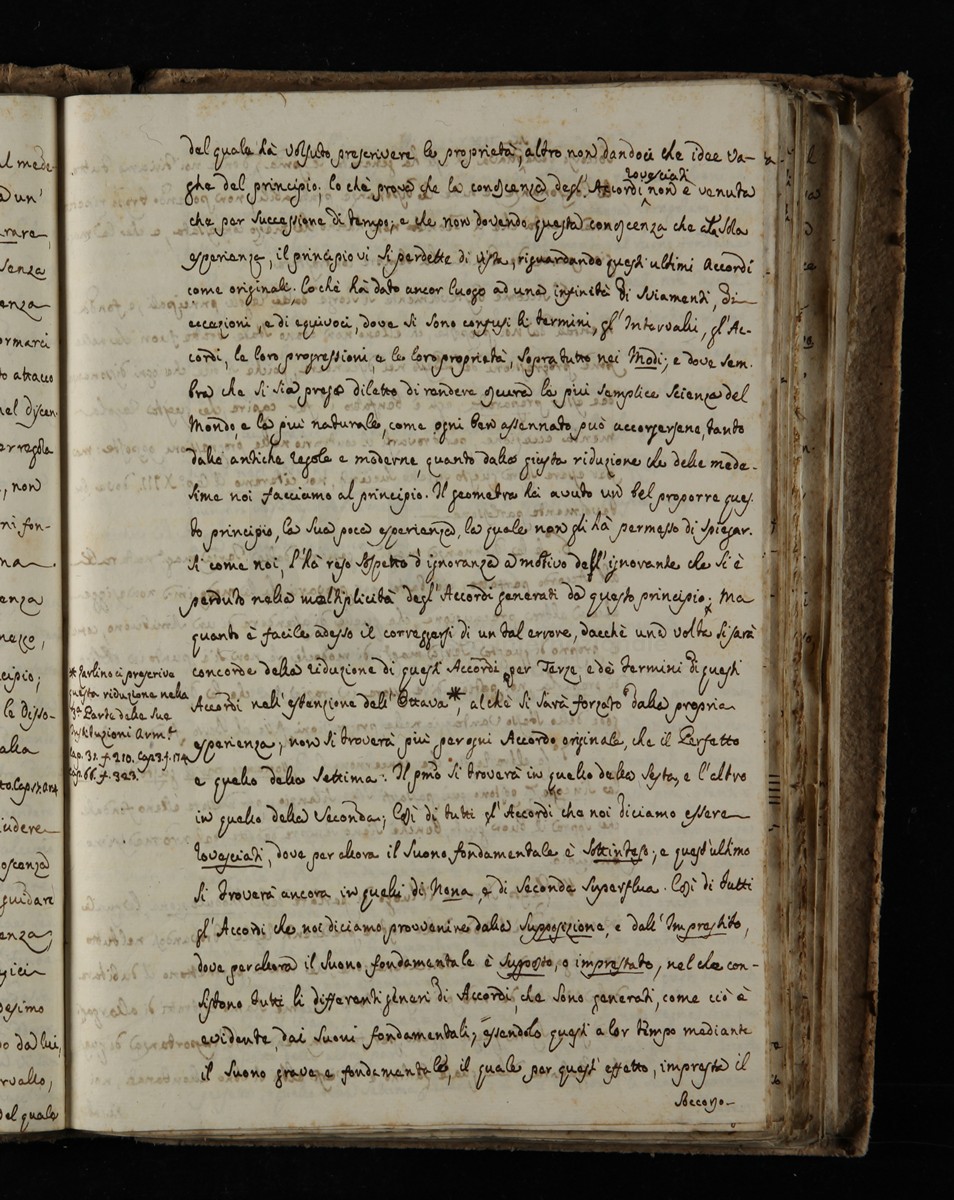 del quale hà voluto prescrivere le proprietà, altro non dandoci che idee va-
ghe del principio; lo chè prova che la conoscenza degl' Accordi rovesciati non è venuta
che per successione di tempo; e che non dovendo questa conoscenza che alla sola
esperienza, il principio vi si perdette di vista, riguardando questi ultimi Accordi
come originali. Lo chè hà dato ancor luogo ad una infinità di sviamenti, di
eccezioni, e di equivoci, dove si sono confusi li termini, gl' Intervalli, gl' Ac-
cordi, le loro progressioni, e le loro proprietà, sopra tutto nei Modi; e dove sem-
bra che si sia preso diletto di rendere oscura la più semplice scienza del
Mondo, e la più naturale, come ogni ben assennato può accorgersene, tanto
dalle antiche regole e moderne, quanto dalla giusta riduzione che delle mede-
sime noi facciamo al principio. Il geometra hà avuto un bel proporre ques-
to principio, la sua poca esperienza, la quale non gli hà permesso di spiegar-
si come noi, l'hà reso sospetto d'ignoranza a motivo dell'ignorante che si è
perduto nella moltiplicità degl' Accordi generati da questo principio; Ma
quanto è facile adesso il correggersi di un tal errore, dacchè una volta si sarà
concorde della riduzione di questi Accordi per Terze, e dei termini di questi
Accordi nell'estenzione dell' Ottava*, al chè si sarà forzato dalla propria
esperienza; non si troverà più per ogni Accordo originale, che il Perfetto
e quello della Settima. Il pmo si troverà in quello della Sesta, e l'altro
in quello della Seconda; Così di tutti gl' Accordi che noi diciamo essere
rovesciati, dove per allora il Suono fondamentale è sottinteso; e quest'ultimo
si troverà ancora in quelli di Nona, e di Seconda superflua. Così di tutti
gl' Accordi che noi diciamo provenire dalla supposizione, e dall' Imprestito,
dove per allora il suono fondamentale è supposto, o imprestato, nel che con-
sistono tutti li differenti generi di Accordi, che sono generati, come ciò è
evidente, dai suoni fondamentali, essendolo questi a lor tempo mediante
il suono grave e fondamentale, il quale per quest' effetto, impresta il
soccorso-
* Zarlino ci prescrive
questa riduzione nella
3ª Parte delle sue
Instituzioni Arm.e
cap. 31. f. 210. Cap. 3. f. 174
cap. 66. f. 323.